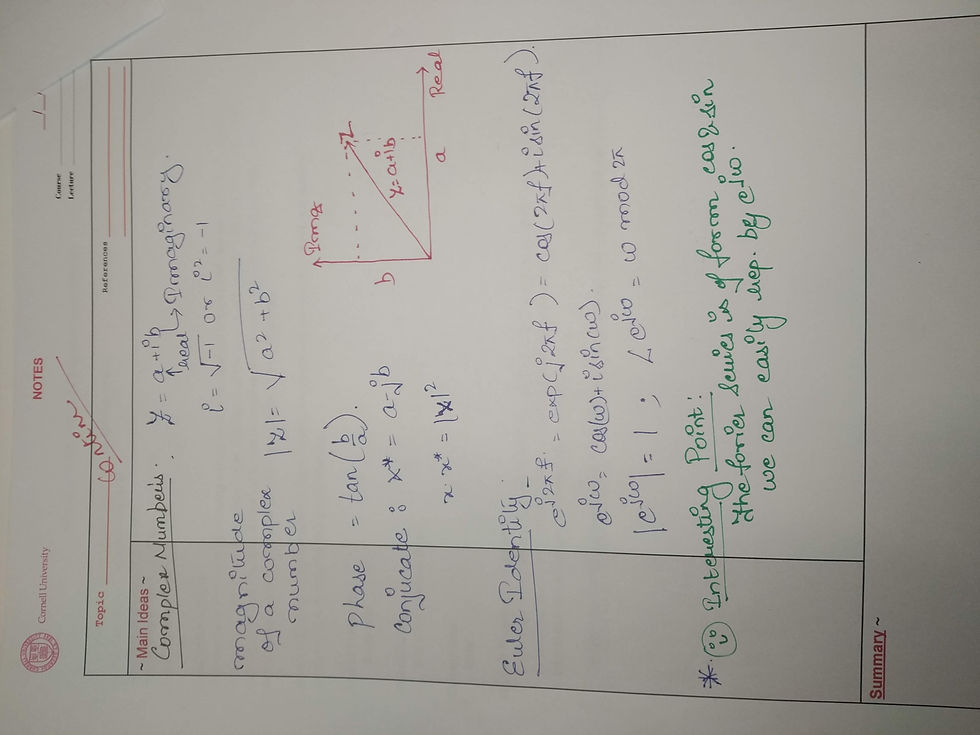 Cornell University
NOTES
Course
Lecture
Topic
References
~ Main Ideas ~
Complex Numbers. z = a+ib
real Imaginary.
i = √-1 or i² = -1
magnitude
of a complex |z| = √a² + b²
number
Phase = tan(b/a).
Conjucate : x* = a-jb
x.x* = |x|²
Img
z
z=a+ib
b
a
Real
Euler Identity -
e^j2πf. = exp(j2πf) = cos(2πf)+isin(2πf).
e^jω = cos(ω)+isin(ω).
|e^jω| = 1 ; ∠e^jω = ω mod 2π
* Interesting Point:
The forier series is of form cos & sin
we can easily rep. by e^jω.
Summary ~